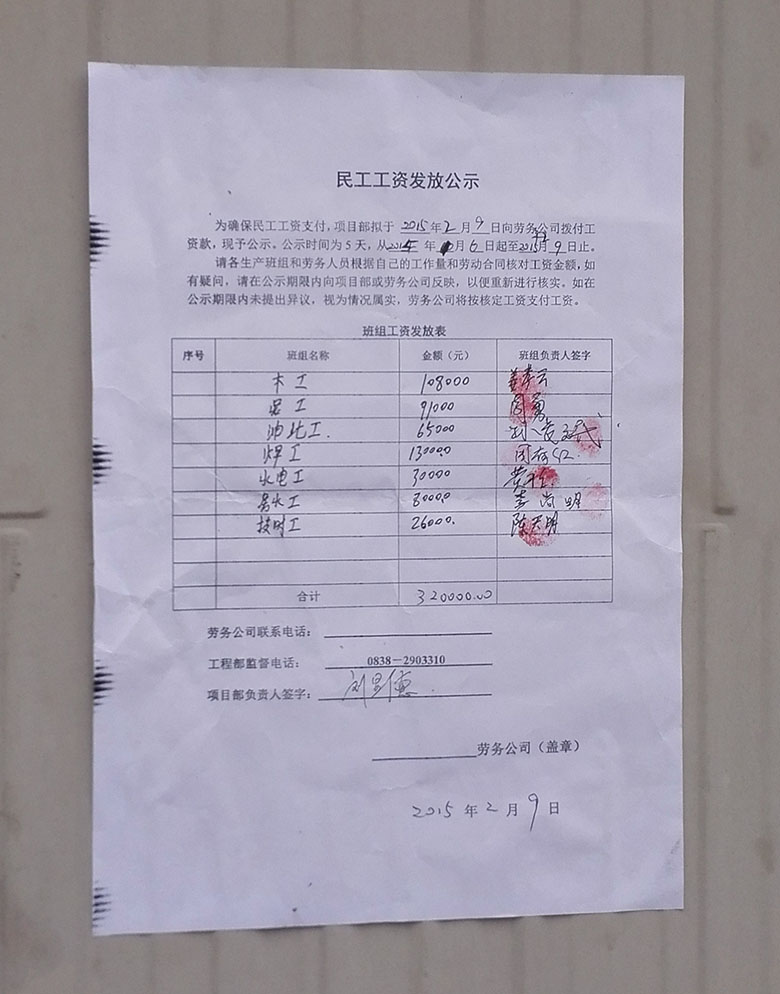 民工工资发放公示
为确保民工工资支付，项目部拟于 2015年2月9日向劳务公司拨付工
资款，现予公示。公示时间为5天，从2015年 月6日起至2015 月9日止。
请各生产班组和劳务人员根据自己的工作量和劳动合同核对工资金额，如
有疑问，请在公示期限内向项目部或劳务公司反映，以便重新进行核实。如在
公示期限内未提出异议，视为情况属实，劳务公司将按核定工资支付工资。
班组工资发放表
序号 班组名称 金额（元） 班组负责人签字
木工 108000
泥工 91000 周勇
油化工 65000
焊工 130000
水电工 30000
防水工 8000.0 李尚明
技时工 26000. 陈天明
合计 320000.00
劳务公司联系电话：
工程部监督电话： 0838－2903310
项目部负责人签字：
劳务公司（盖章）
2015 年 2 月 9 日